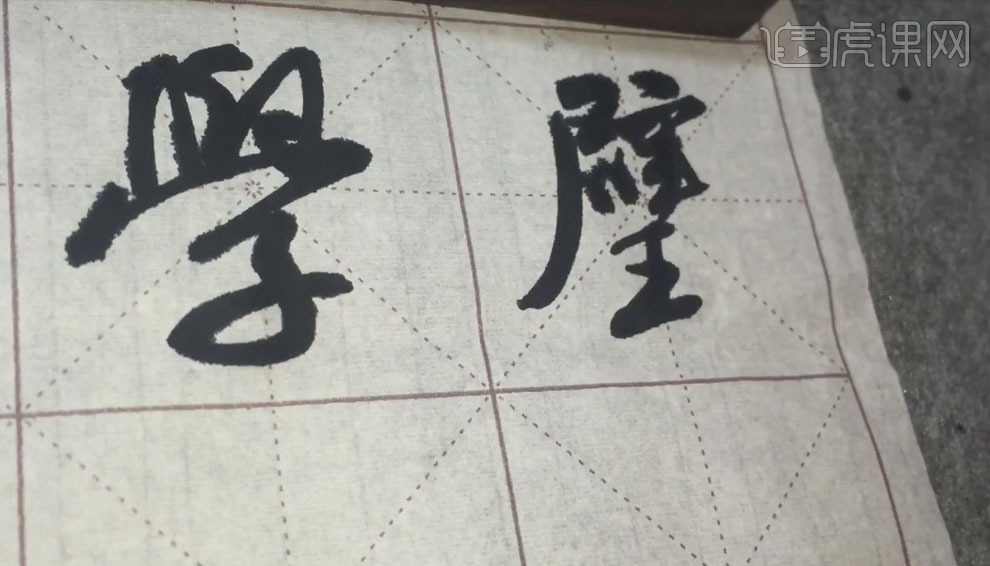 虎课网
學 璧